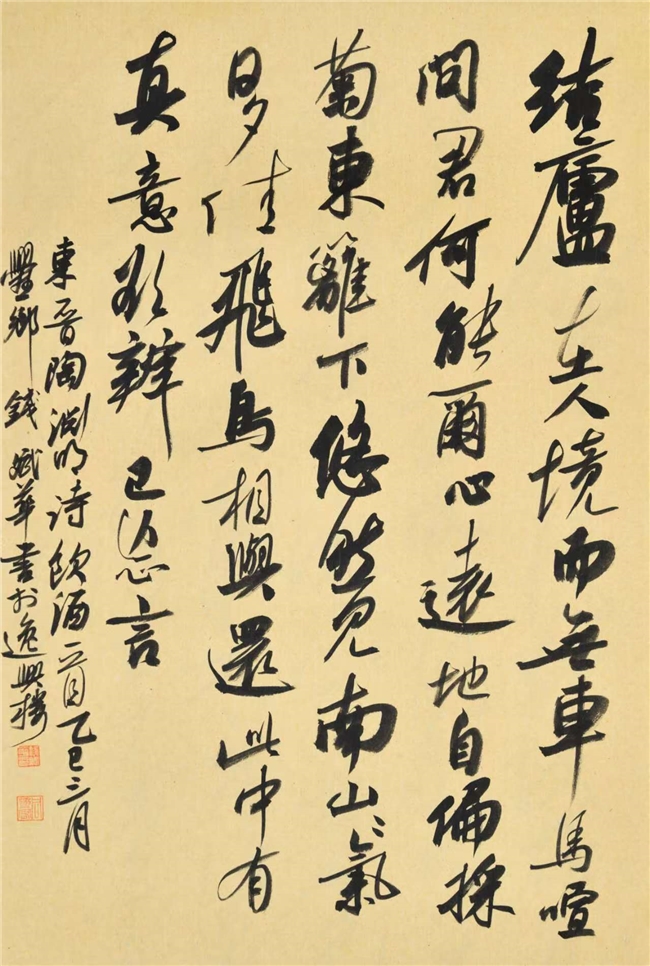 結廬在人境而無車馬喧
問君何能爾心遠地自偏採
菊東籬下悠然見南山〻氣
日夕佳飛鳥相與還此中有
真意欲辨已忘言
東晉陶淵明詩飲酒一首乙巳三月
鄉錢斌華書於逸興樓